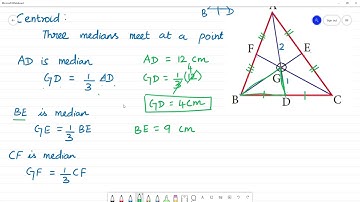 Centroid :
Three medians meet at a point
AD is median
AD = 12 cm
GD = 1/3 AD
GD = 1/3 (12) 4
GD = 4cm
BE is median
GE = 1/3 BE
BE = 9 cm
CF is median
GF = 1/3 CF
B D
A
F
2
E
G
1
B
D
C